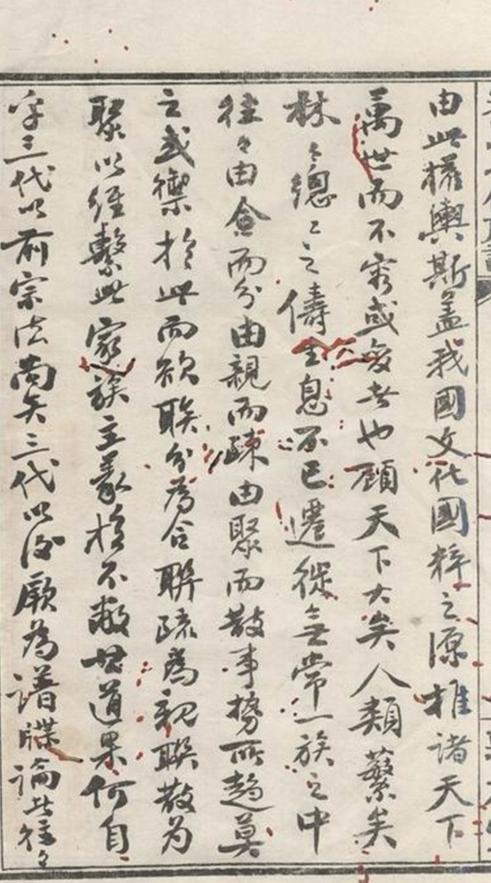 由此權輿斯蓋我國文化國粹之源推諸天下
萬世而不容或變者也顧天下大矣人類蘩矣
林々總々之儔生息不已遷徙無常一族之中
往々由合而分由親而疎由聚而散事勢所趨莫
之或禦於此而欲聯分為合聯疏為親聯散為
聚以維繫此家族主義於不敝世道果何自
乎三代以前宗法尚矣三代以後厥為譜牒論者往々